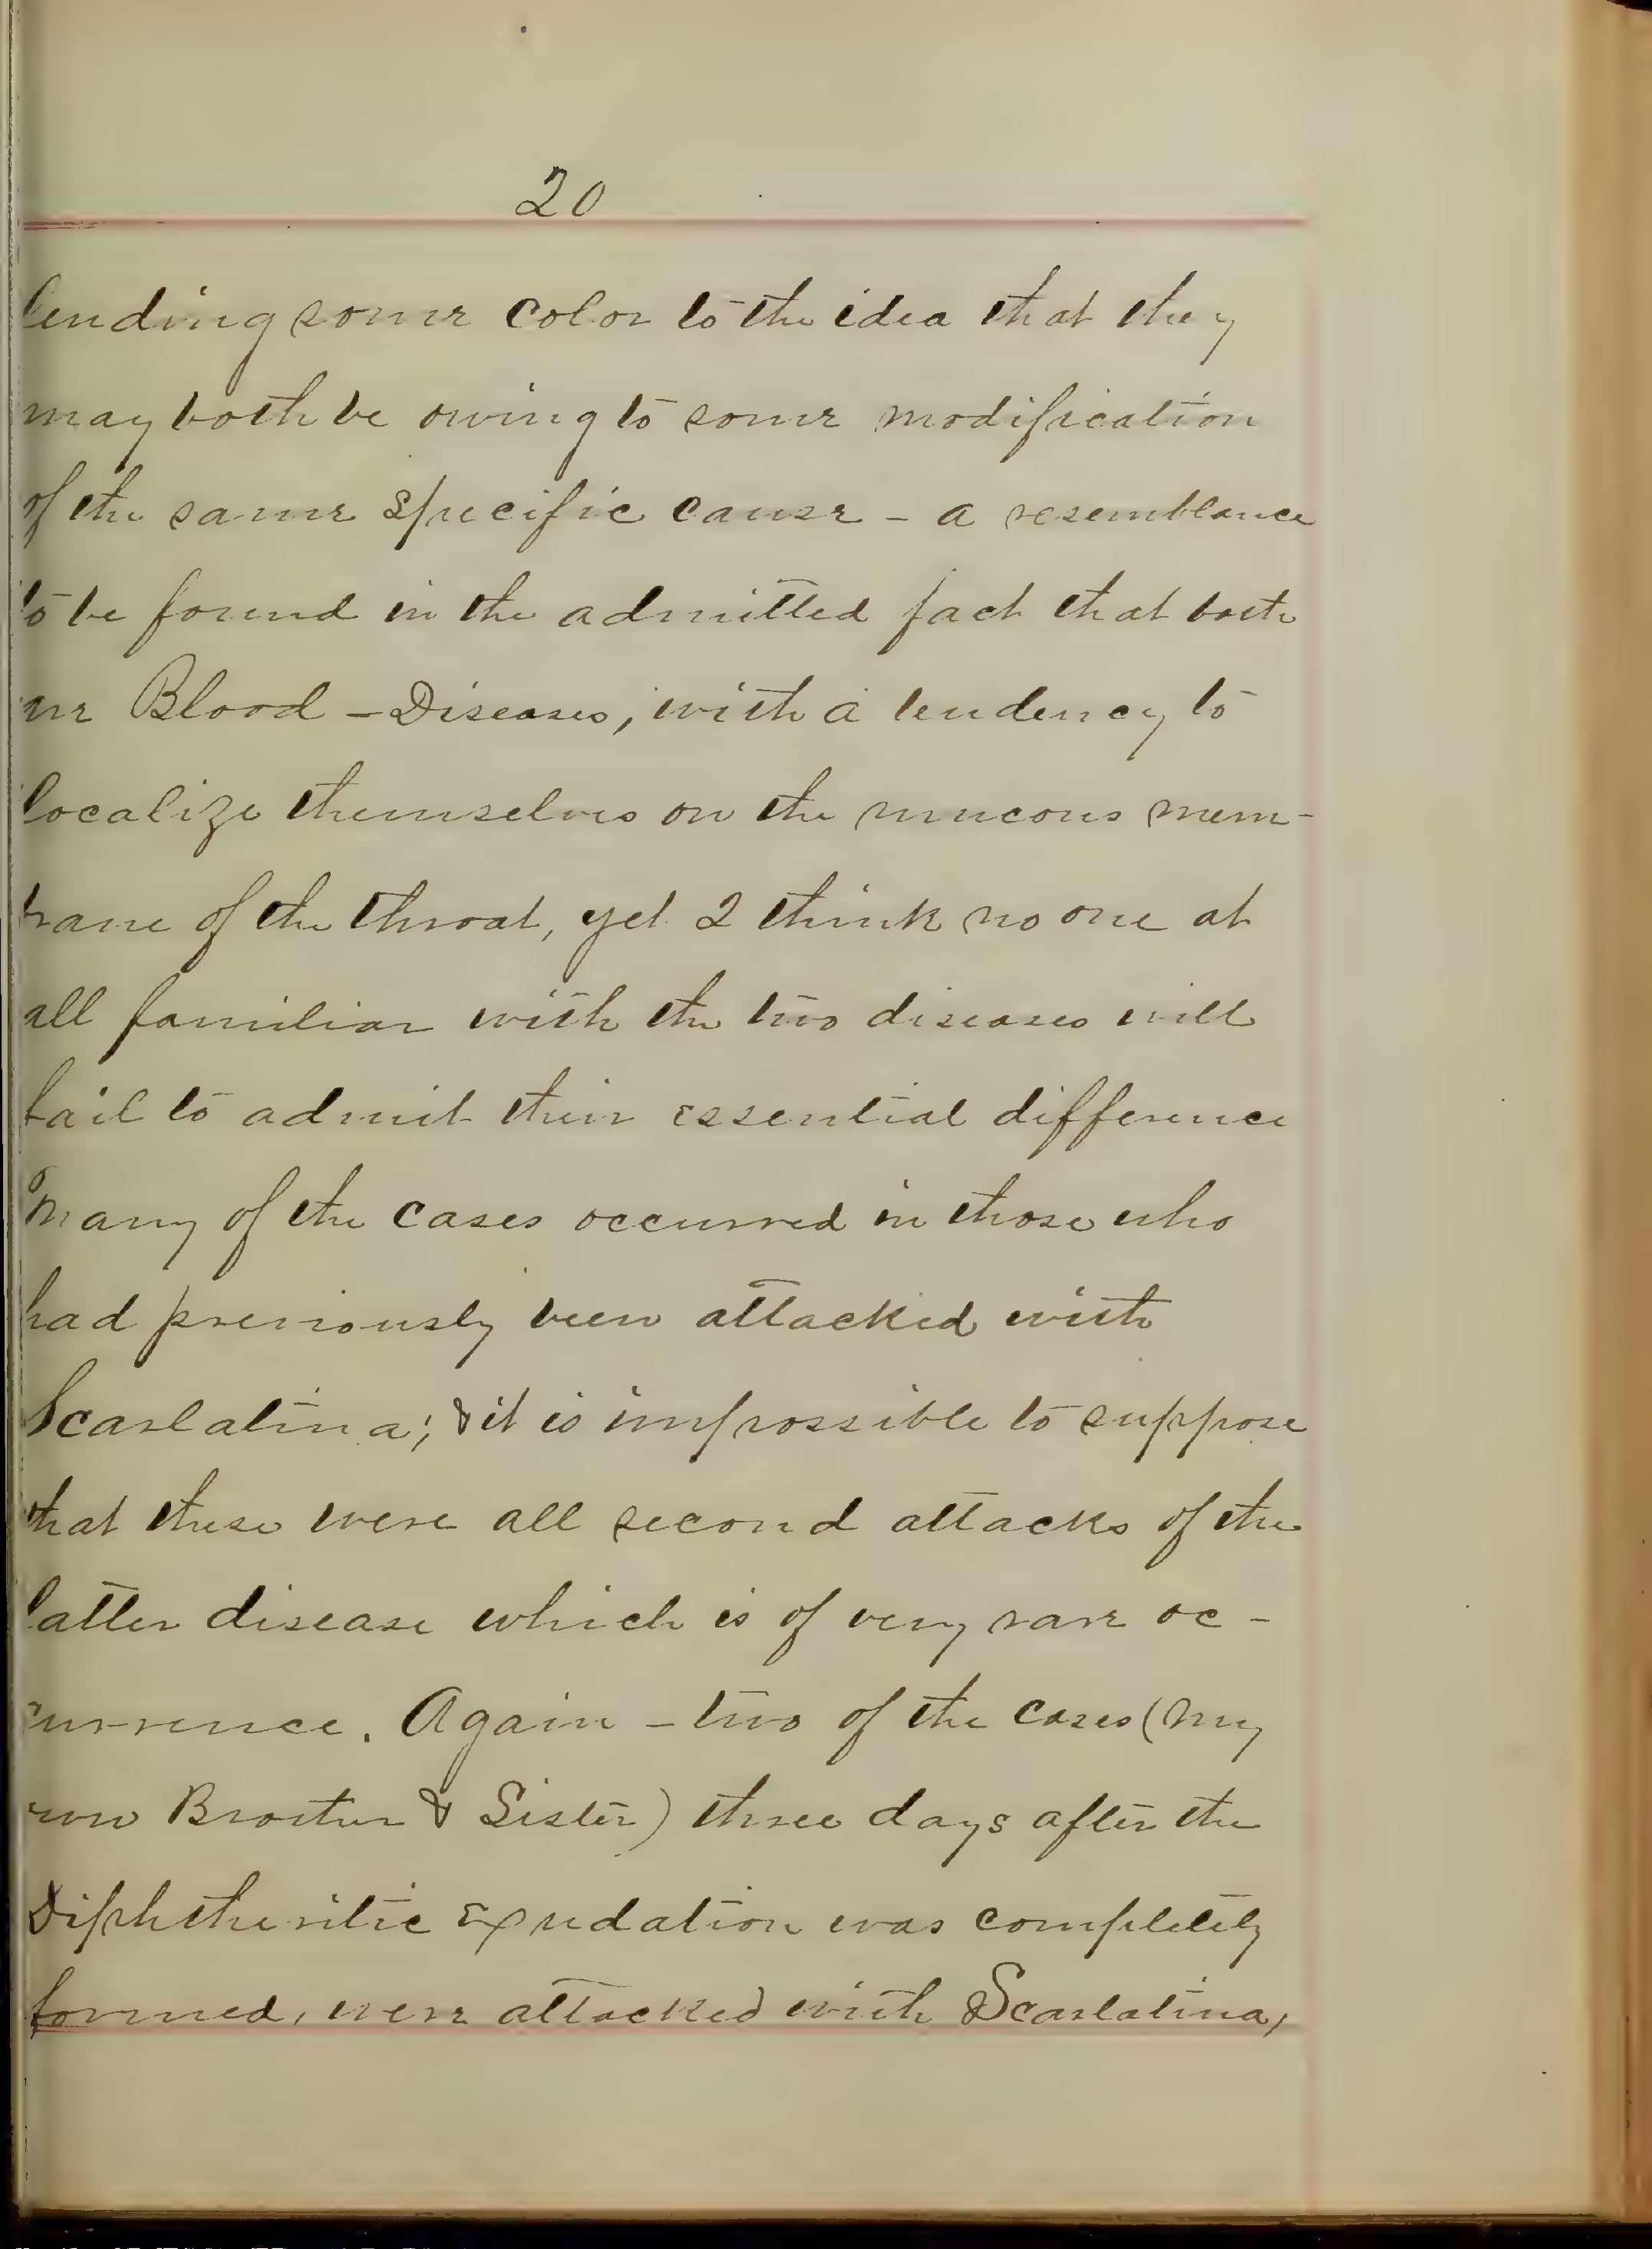 20
lending some color to the idea that they
may both be owing to some modification
of the same specific cause - a resemblance
to be found in the admitted fact that both
are Blood - Diseases, with a tendency to
localize themselves on the mucous mem-
brane of the throat, yet I think no one at
all familiar with the two diseases will
fail to admit their essential difference
Many of the cases occurred in those who
had previously been attacked with
Scarlatina; & it is impossible to suppose
that these were all second attacks of the
latter disease which is of very rare oc-
currence. Again - two of the cases (my
own Brother & Sister) three days after the
Diphtheritic Exudation was completely
formed, were attacked with Scarlatina,